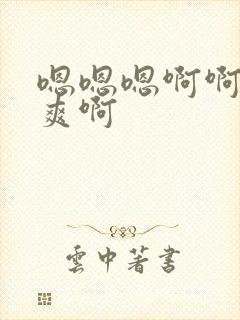 嗯嗯嗯啊啊
爽啊
雲中著書